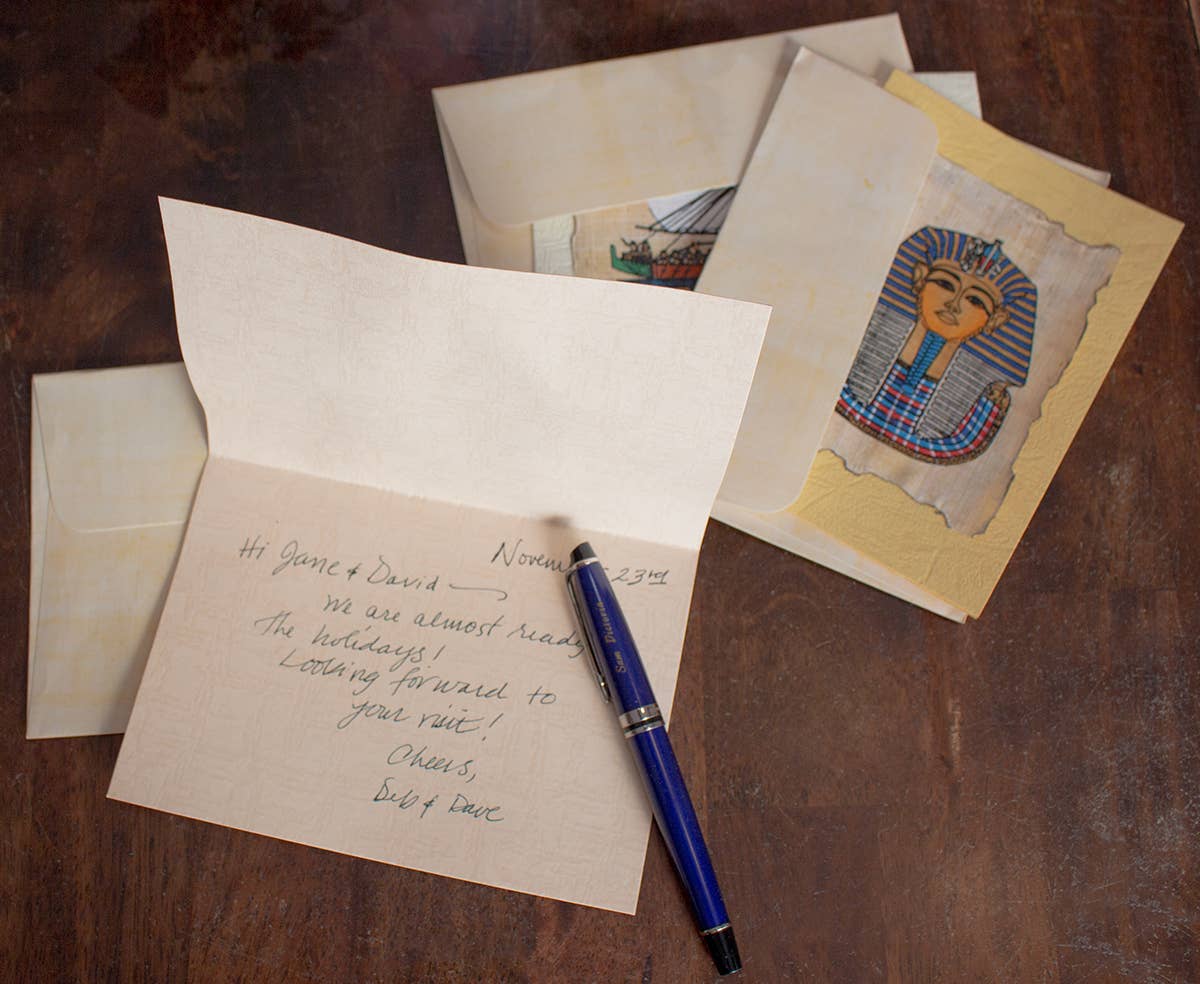 Novem 23rd
Hi Jane & David —
We are almost ready
The holidays!
Looking forward to
your visit!
Cheers,
Deb & Dave
Sam